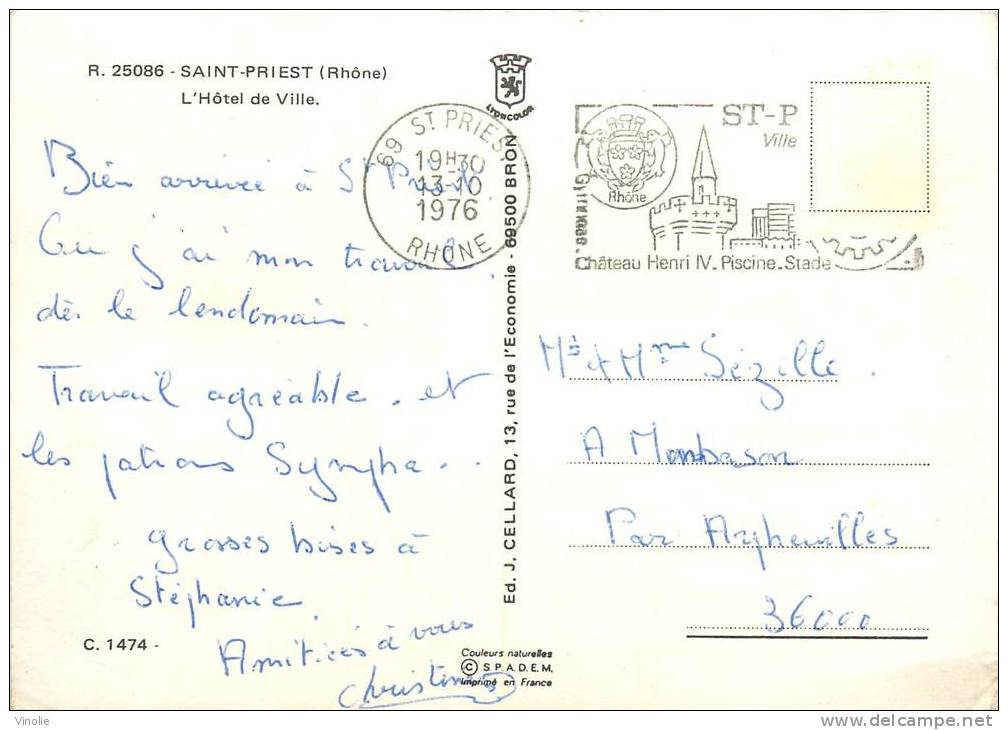 R. 25086 - SAINT-PRIEST (Rhône)
L'Hôtel de Ville.
LYONCOLOR
69 ST PRIEST
19H30
13-10
1976
RHÔNE
ST-P
Ville
Rhône
Gymnase.
Château Henri IV. Piscine. Stade
Bien arrivée à St Priest.
j'ai mon travail
dès le lendemain.
Travail agréable. et
les patrons Sympa...
grosses bises à
Stéphanie.
Amitiés à vous
Christine
Ed. J. CELLARD, 13, rue de l'Economie - 69500 BRON
Mr et Mme Sézille.
A Monbason
Par Arpheuilles
36000
C. 1474 -
Couleurs naturelles
© S.P.A.D.E.M.
Imprimé en France
Vinolie
http://www.delcampe.net